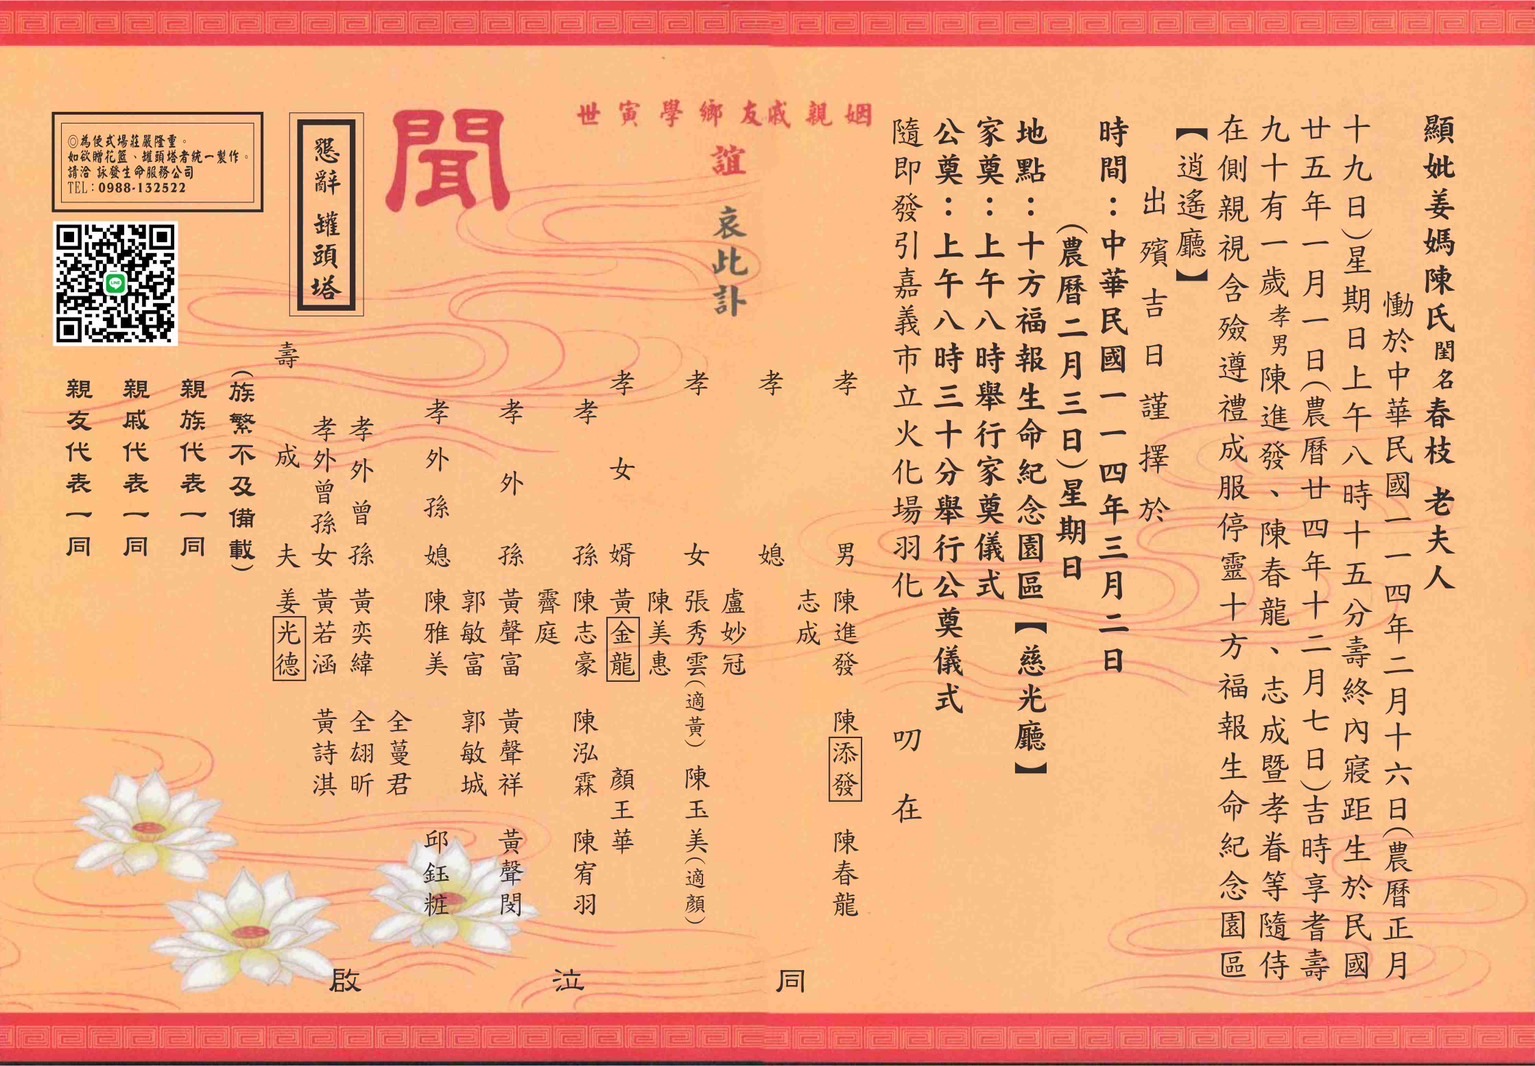 顯妣姜媽陳氏閨名春枝 老夫人
慟於中華民國一一四年二月十六日(農曆正月
十九日)星期日上午八時十五分壽終內寢距生於民國
廿五年一月一日(農曆廿四年十二月七日)吉時享耆壽
九十有一歲孝男陳進發、陳春龍、志成暨孝眷等隨侍
在側親視含殮遵禮成服停靈十方福報生命紀念園區
【逍遙廳】
出殯吉日謹擇於
時間：中華民國一一四年三月二日
(農曆二月三日)星期日
地點：十方福報生命紀念園區【慈光廳】
家奠：上午八時舉行家奠儀式
公奠：上午八時三十分舉行公奠儀式
隨即發引嘉義市立火化場羽化 叨在
姻親戚友鄉學寅世
誼 哀此訃
聞
孝男 陳進發 陳添發 陳春龍
志成
孝媳
盧妙冠
孝女 張秀雲(適黃) 陳玉美(適顏)
陳美惠
孝女婿 黃金龍 顏王華
孝孫 陳志豪 陳泓霖 陳宥羽
霽庭
孝外孫 黃聲富 黃聲祥 黃聲閔
郭敏富 郭敏城
孝外孫媳 陳雅美 邱鈺粧
全蔓君
孝外曾孫 黃奕緯 全翃昕
孝外曾孫女 黃若涵 黃詩淇
壽成夫 姜光德
(族繁不及備載)
親族代表一同
親戚代表一同
親友代表一同
同泣啟
懇辭 罐頭塔
◎為使式場莊嚴隆重。
如欲贈花籃、罐頭塔者統一製作。
請洽 詠發生命服務公司
TEL：0988-132522